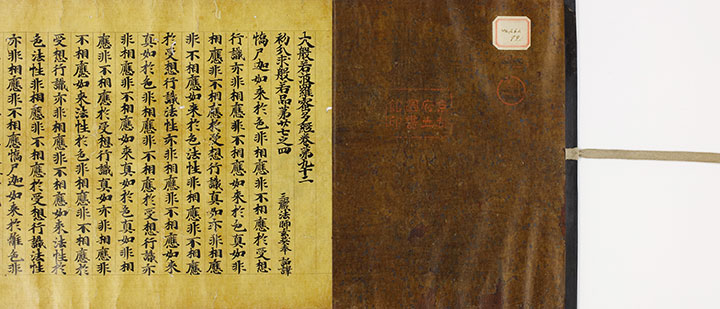 大般若波羅蜜多經卷第九十二
初分求般若品第廿七之四
三藏法師玄奘奉 詔譯
憍尸迦如來於色非相應非不相應於受想
行識亦非相應非不相應如來於色真如非
相應非不相應於受想行識真如亦非相應
非不相應如來於色法性非相應非不相應
於受想行識法性亦非相應非不相應如來
真如於色非相應非不相應於受想行識亦
非相應非不相應如來真如於色真如非相
應非不相應於受想行識真如亦非相應非
不相應如來法性於色非相應非不相應於
受想行識亦非相應非不相應如來法性於
色法性非相應非不相應於受想行識法性
亦非相應非不相應憍尸迦如來於離色非